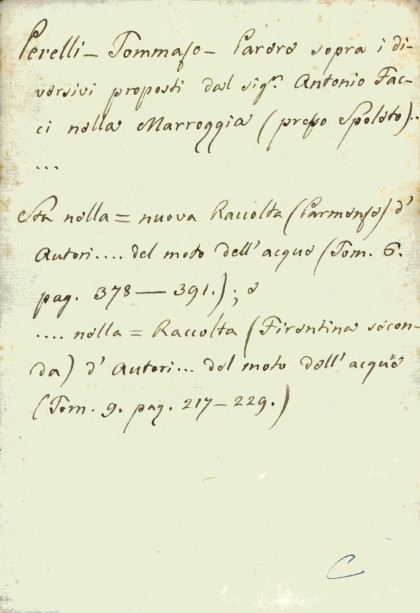 Perelli - Tommaso - Parere sopra i di-
versivi proposti dal sigr. Antonio Fac-
ci nella Marroggia (presso Spoleto)..
...
Sta nella = nuova Raccolta (Parmense) d'
Autori.... del moto dell'acque (Tom. 6.
pag. 378 — 391.); e
.... nella = Raccolta (Fiorentina secon-
da) d' Autori... del moto dell' acque
(Tom. 9. pag. 217 - 229.)
C